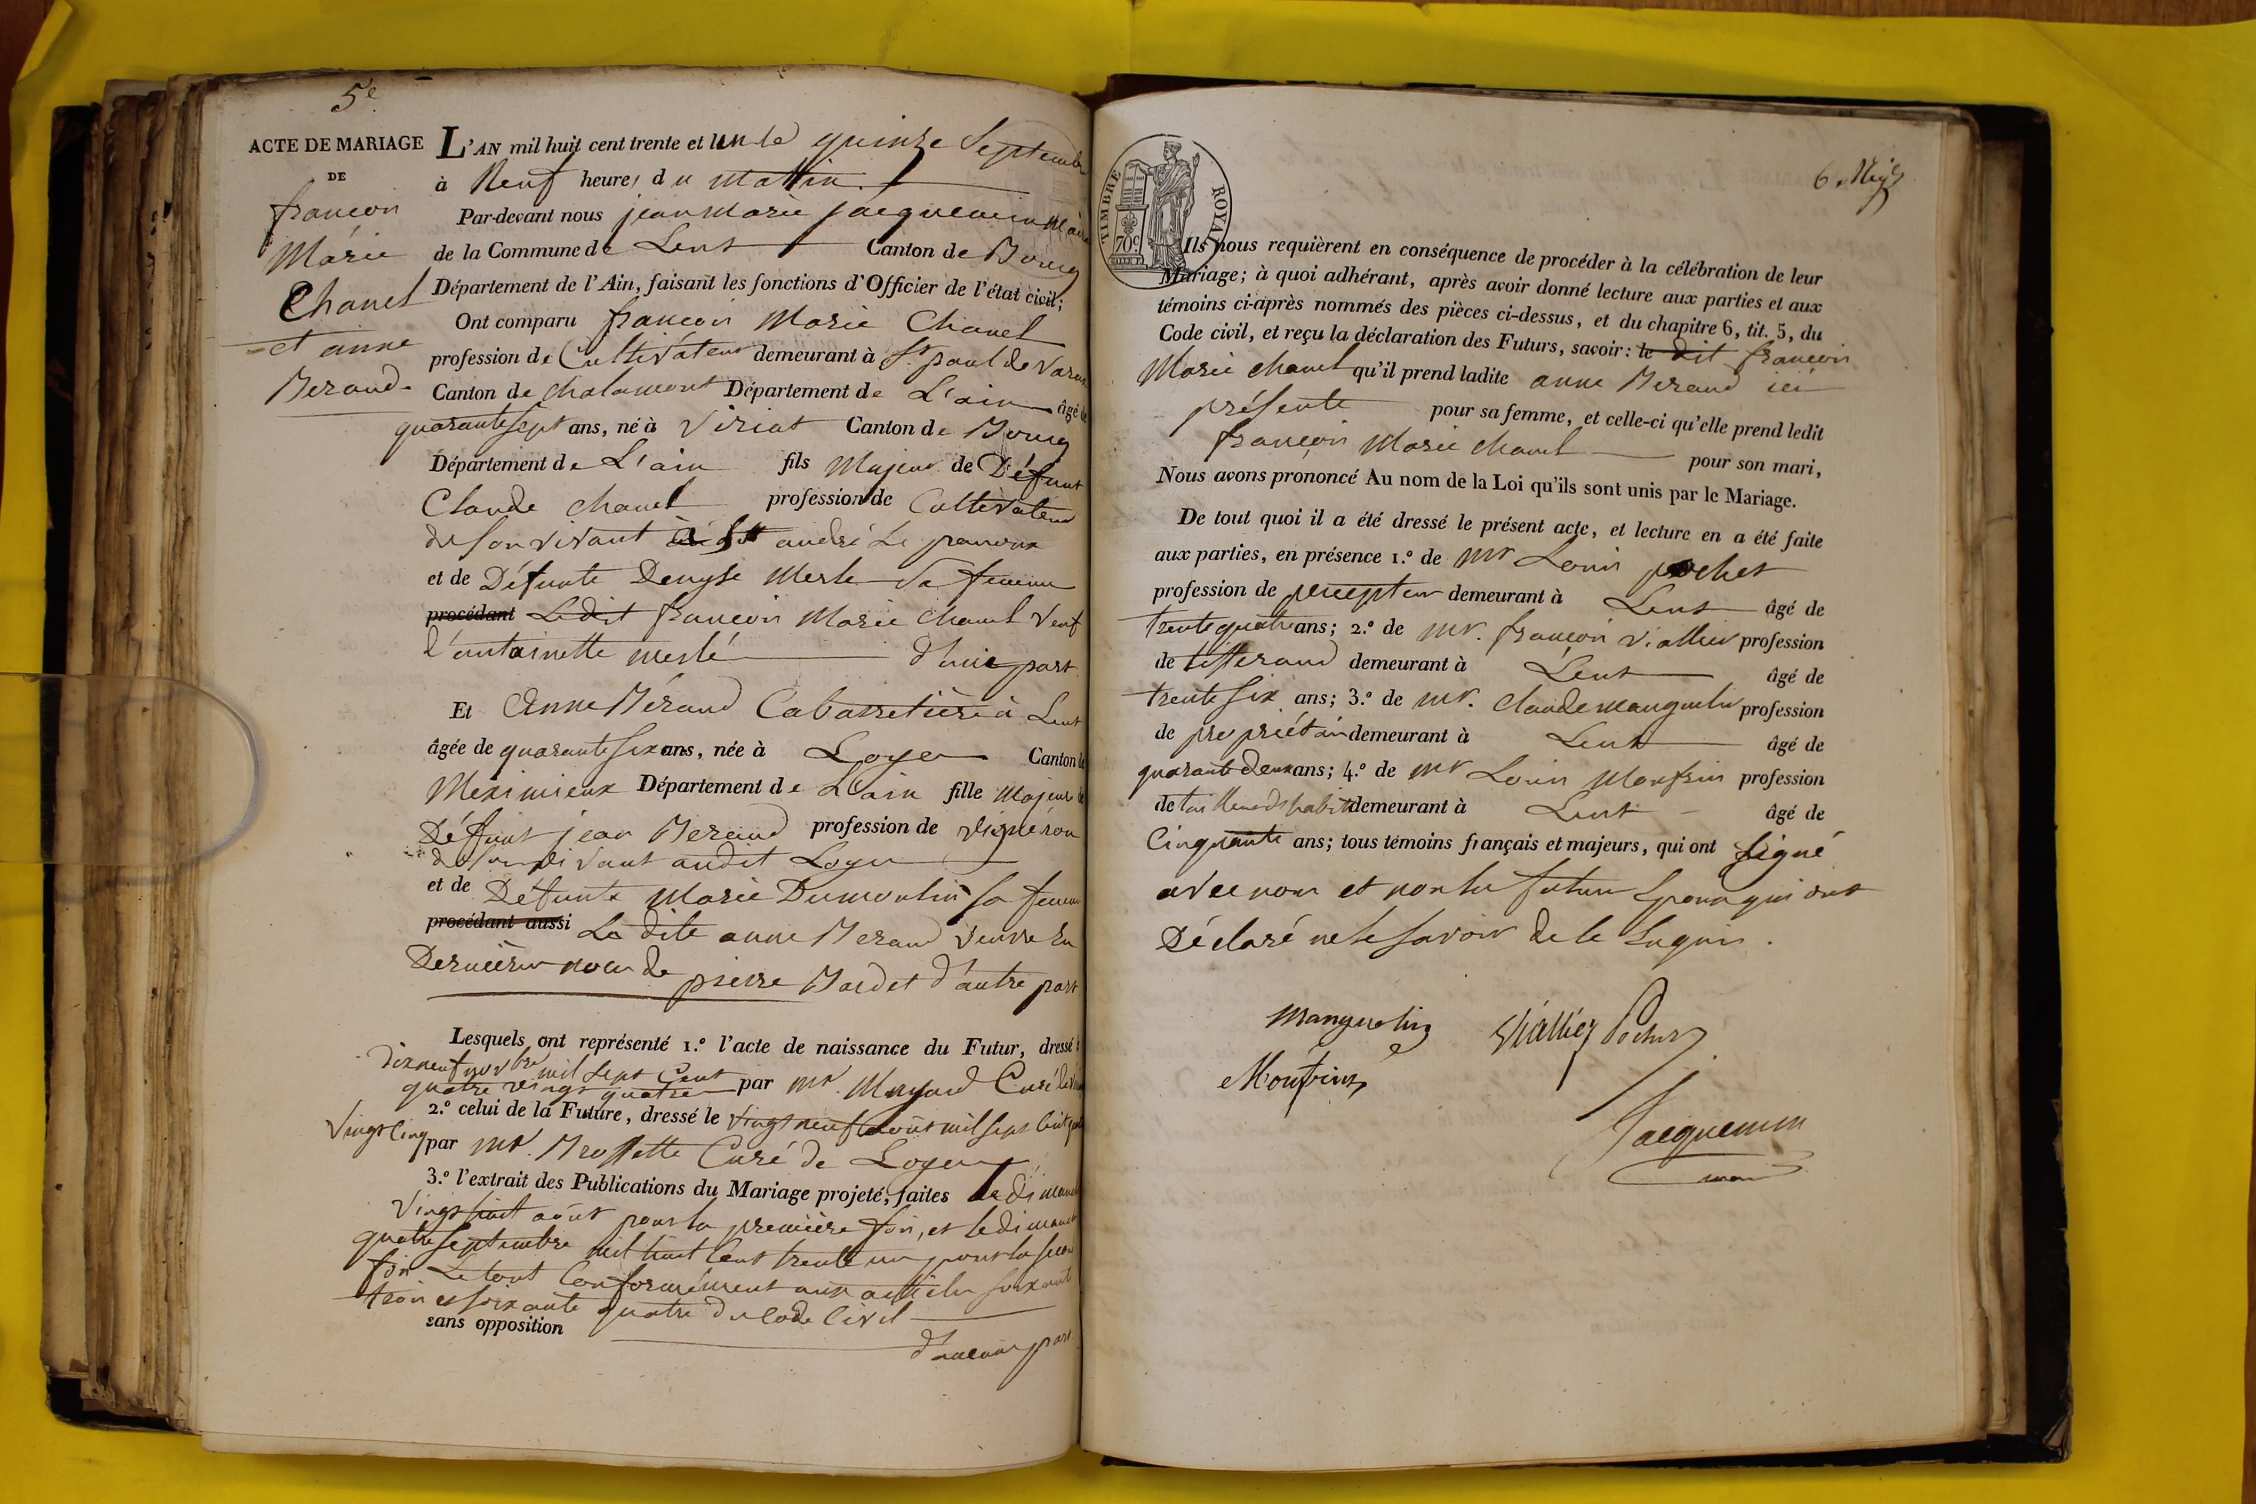 5e.
ACTE DE MARIAGE
DE
françois
Marie
Chanel
et anne
Beraud
L'AN mil huit cent trente et un le quinze Septembre
à Neuf heures du Mattin.
Par-devant nous jean Marie Jacquemin Maire
de la Commune de Lent Canton de Bourg
Département de l'Ain, faisant les fonctions d'Officier de l'état civil;
Ont comparu françois Marie Chanel
profession de Cultivateur demeurant à St paul de Varax
Canton de Chalamont Département de L'ain âgé de
quarante sept ans, né à Viriat Canton de Bourg
Département de L'ain fils Majeur de Défunt
Claude Chanel profession de Cultivateur
de son vivant à St andré Le panoux
et de Défunte Denyse Merle Sa femme
procédant Ledit françois Marie Chanel Veuf
d'antoinette merle d'une part
Et Anne Béraud Cabarretière à Lent
âgée de quarante six ans, née à Loyes Canton de
Meximieux Département de L'ain fille Majeure de
Défunt jean Beraud profession de Vigneron
de son vivant audit Loyes
et de Défunte Marie Dumoulin sa femme
procédant aussi La dite anne Beraud Veuve En
Dernières noces de pierre Bardet d'autre part
Lesquels ont représenté 1.º l'acte de naissance du Futur, dressé le
dixneuf novbre mil sept Cent
quatre vingt quatre par mr. Mayard Curé de Viriat
2.º celui de la Future, dressé le vingt neuf août mil sept Cent quatre
Vingt Cinq par mr. Brossette Curé de Loyes
3.º l'extrait des Publications du Mariage projeté, faites Le dimanche
Vingt huit août pour la première fois, et le dimanche
quatre Septembre mil huit Cent trente un pour la seconde
fois Le tout Conformément aux articles soixante
trois et soixante quatre du Code Civil
sans opposition d'aucune part
6 Mig
TIMBRE ROYAL
70c.
Ils nous requièrent en conséquence de procéder à la célébration de leur
Mariage; à quoi adhérant, après avoir donné lecture aux parties et aux
témoins ci-après nommés des pièces ci-dessus, et du chapitre 6, tit. 5, du
Code civil, et reçu la déclaration des Futurs, savoir: le dit françois
Marie Chanel qu'il prend ladite anne Beraud ici
présente pour sa femme, et celle-ci qu'elle prend ledit
françois Marie Chanel pour son mari,
Nous avons prononcé Au nom de la Loi qu'ils sont unis par le Mariage.
De tout quoi il a été dressé le présent acte, et lecture en a été faite
aux parties, en présence 1.º de mr Louis pochet
profession de percepteur demeurant à Lent âgé de
trente quatre ans; 2.º de mr. françois Viallier profession
de tisserand demeurant à Lent âgé de
trente six ans; 3.º de mr. Claude manguelin profession
de propriétaire demeurant à Lent âgé de
quarante deux ans; 4.º de mr Louis Monfrin profession
de tailleur d'habits demeurant à Lent âgé de
Cinquante ans; tous témoins français et majeurs, qui ont signé
avec nous et non les futurs Epoux qui ont
Déclaré ne le savoir de ce Enquis.
Manguelin Vialliez Pochet
Monfrin
Jacquemin
maire